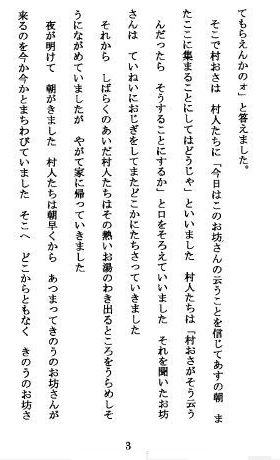 てもらえんかのォ」と答えました。
そこで村おさは　村人たちに「今日はこのお坊さんの云うことを信じてあすの朝　ま
たここに集まることにしてはどうじゃ」といいました　村人たちは「村おさがそう云う
んだったら　そうすることにするか」と口をそろえていいました　それを聞いたお坊
さんは　ていねいにおじぎをしてまたどこかにたちさっていきました
それから　しばらくのあいだ村人たちはその熱いお湯のわき出るところをうらめしそ
うにながめていましたが　やがて家に帰っていきました
夜が明けて　朝がきました　村人たちは朝早くから　あつまってきのうのお坊さんが
来るのを今か今かとまちわびていました　そこへ　どこからともなく　きのうのお坊さ
3